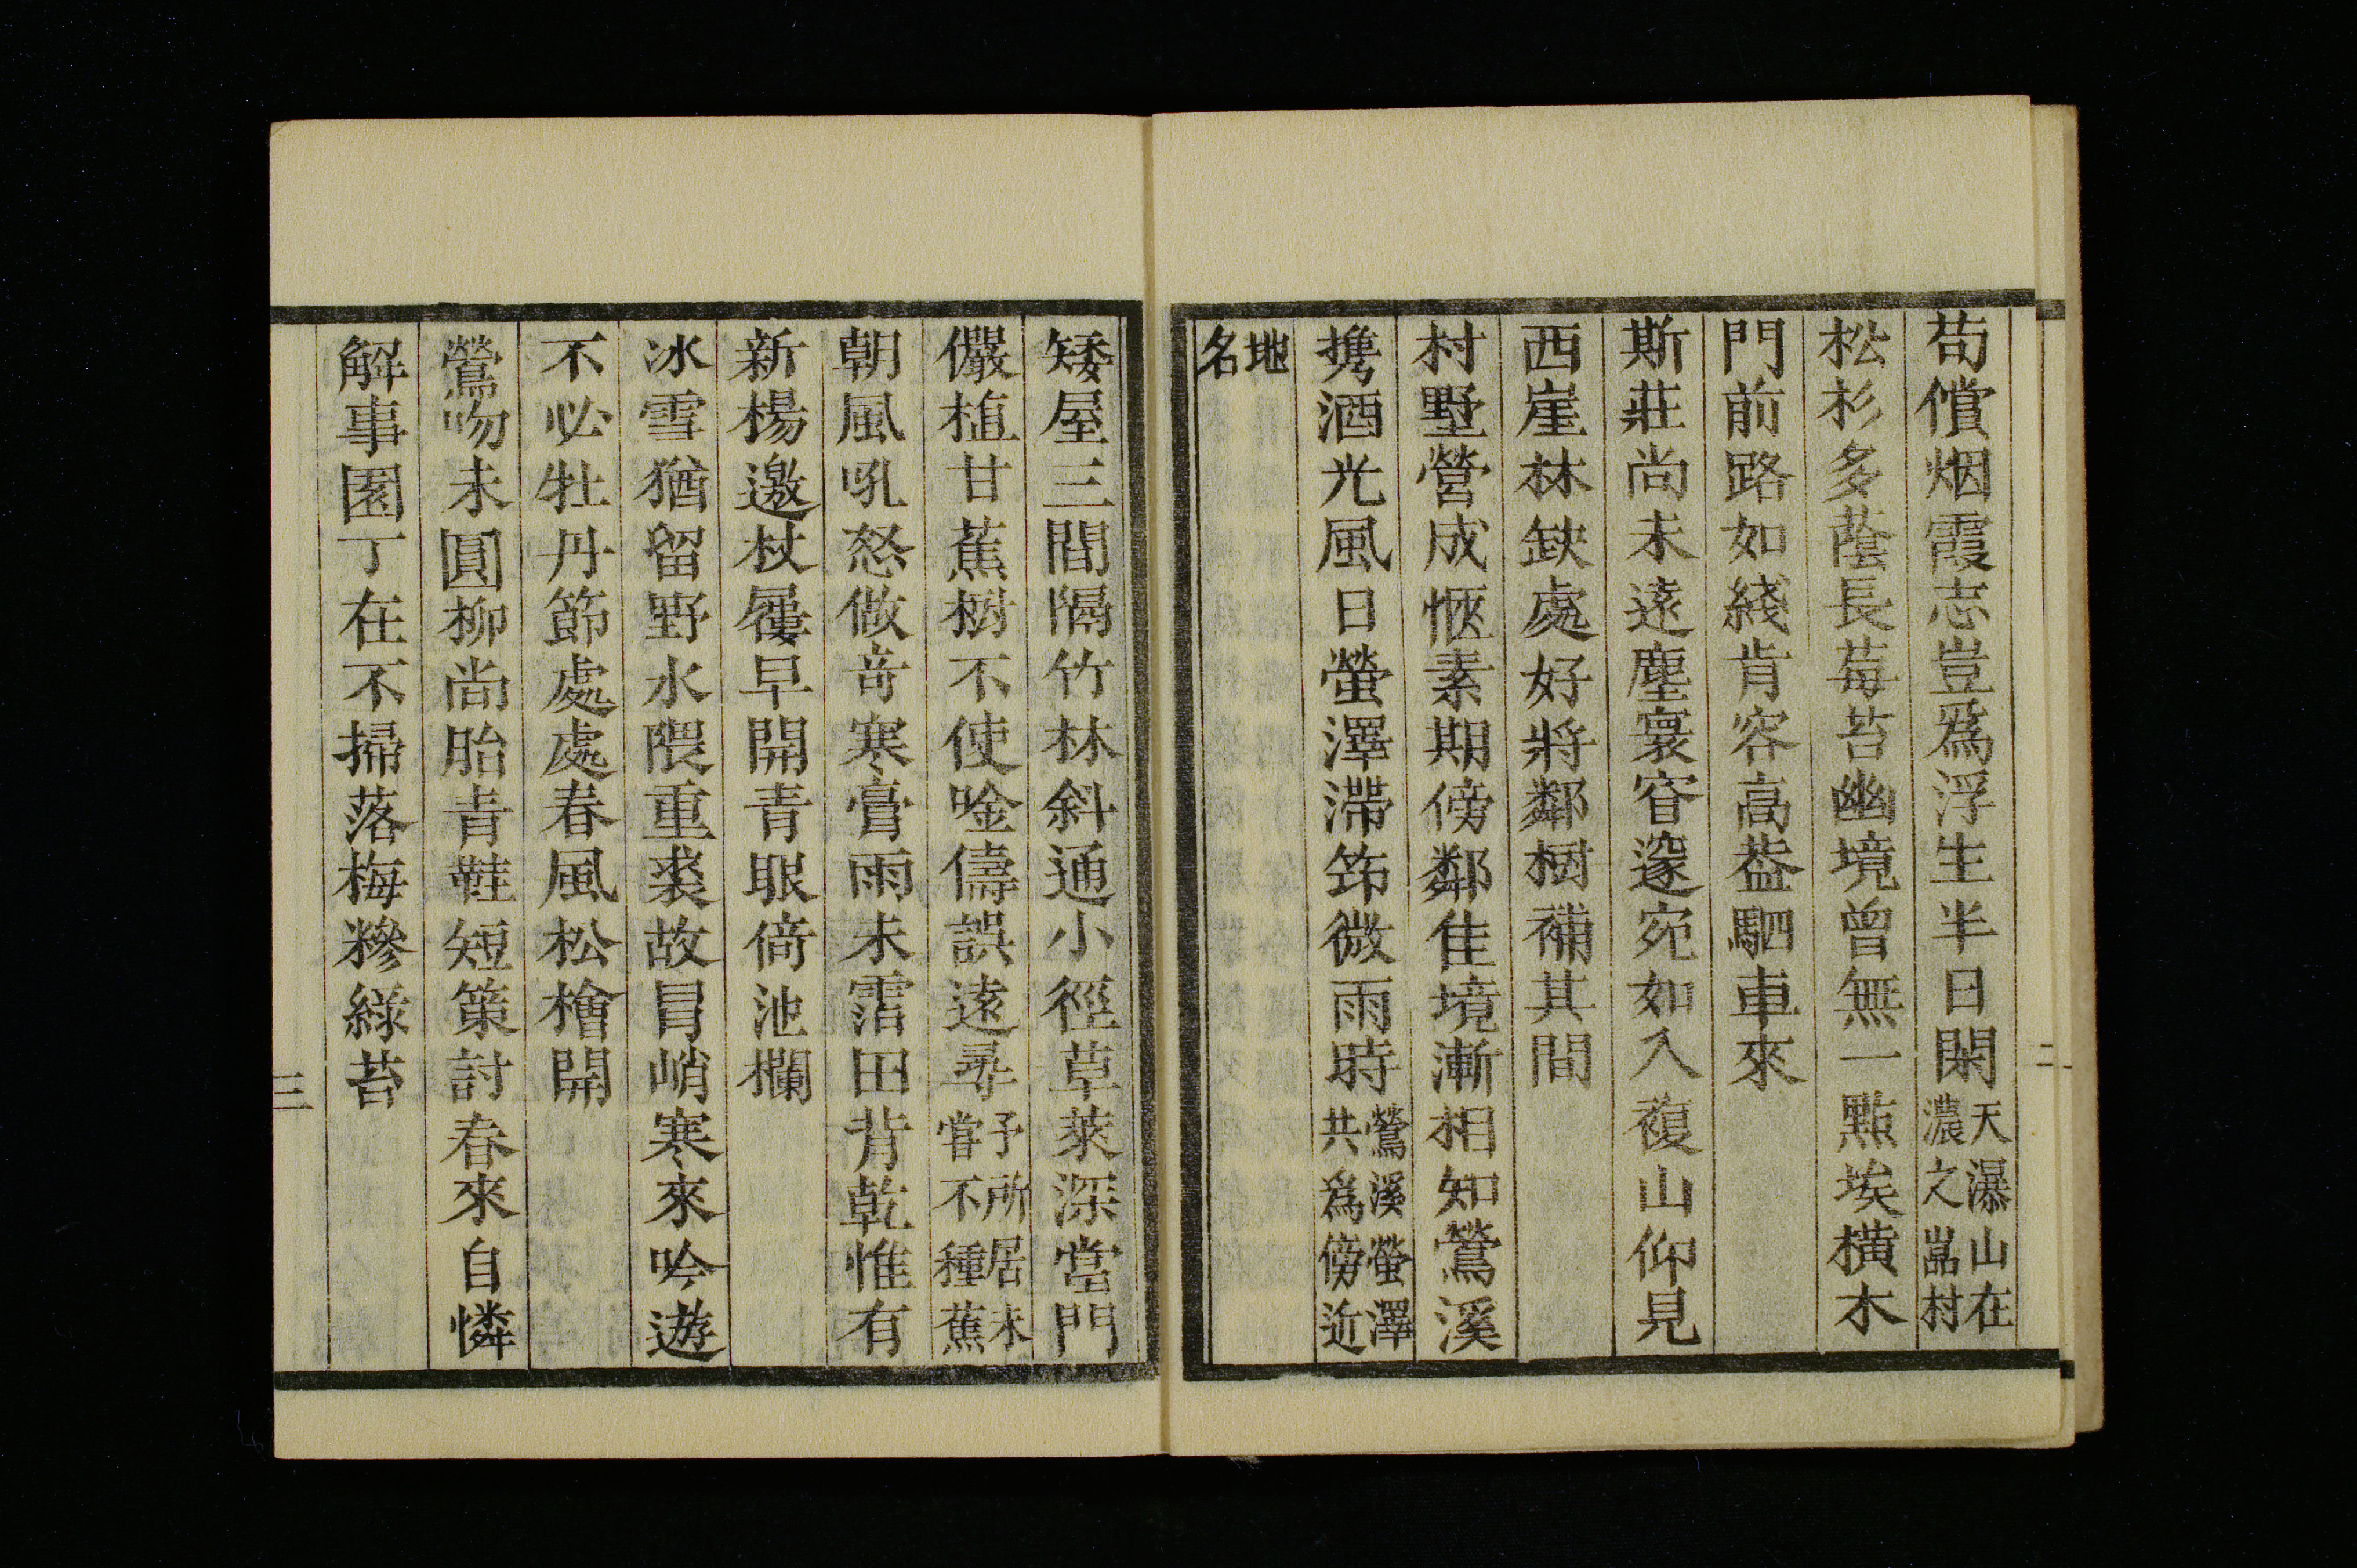 苟償烟霞志豈爲浮生半日閑天瀑山在濃之嵓村
松杉多蔭長莓苔幽境曾無一點埃橫木
門前路如綫肯容高葢駟車來
斯莊尚未遠塵寰窅邃宛如入複山仰見
西崖林缺處好將鄰樹補其間
村墅營成愜素期傍鄰佳境漸相知鶯溪
携酒光風日螢澤滯筇微雨時鶯溪螢澤共爲傍近
地名
二
矮屋三間隔竹林斜通小徑草萊深當門
儼植甘蕉樹不使唫儔誤遠尋予所居未嘗不種蕉
朝風吼怒做竒寒膏雨未霑田背乾惟有
新楊邀杖屨早開青眼倚池欄
冰雪猶留野水隈重裘故冒峭寒來吟遊
不必牡丹節處處春風松檜開
鶯吻未圓柳尚胎青鞋短策討春來自憐
解事園丁在不掃落梅糝綠苔
三